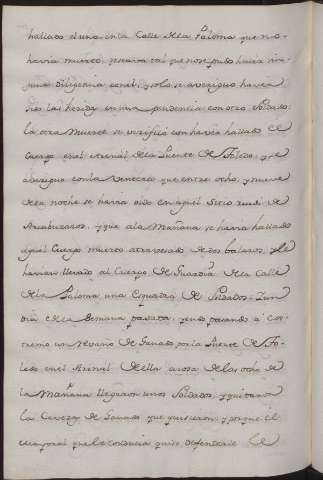 hallado el uno, en la Calle de la Paloma que no
havia muerto, pero era tal que no se pudo hacer nin-
guna diligencia con el, y solo se averiguo havia
dies las heridas en una pendencia con otro Soldado:
la otra Muerte se verificó con havia hallado el
Cuerpo en el Arenal de la Puente de Toledo, y se
averiguo con la que entre ocho, y nueve
de la noche se havia oido en aquel Sitio ruido de
Arcabuzazos, y que a la Mañana se havia hallado
aquel Cuerpo muerto atravesado de dos balazos, y le
havian llevado al Cuerpo de Guardia de la Calle
de la Paloma una Esquadra de Soldados. Y un
dia de la Semana pasada, yendo pasando a
un revaño de Ganado por la Puente de To-
ledo en el Arenal de ella a cosa de las ocho de
la Mañana llegaron unos Soldados, y quitaron
la Caveza de Ganado que quisieron, y porque el
que lo conducia quiso defenderle le